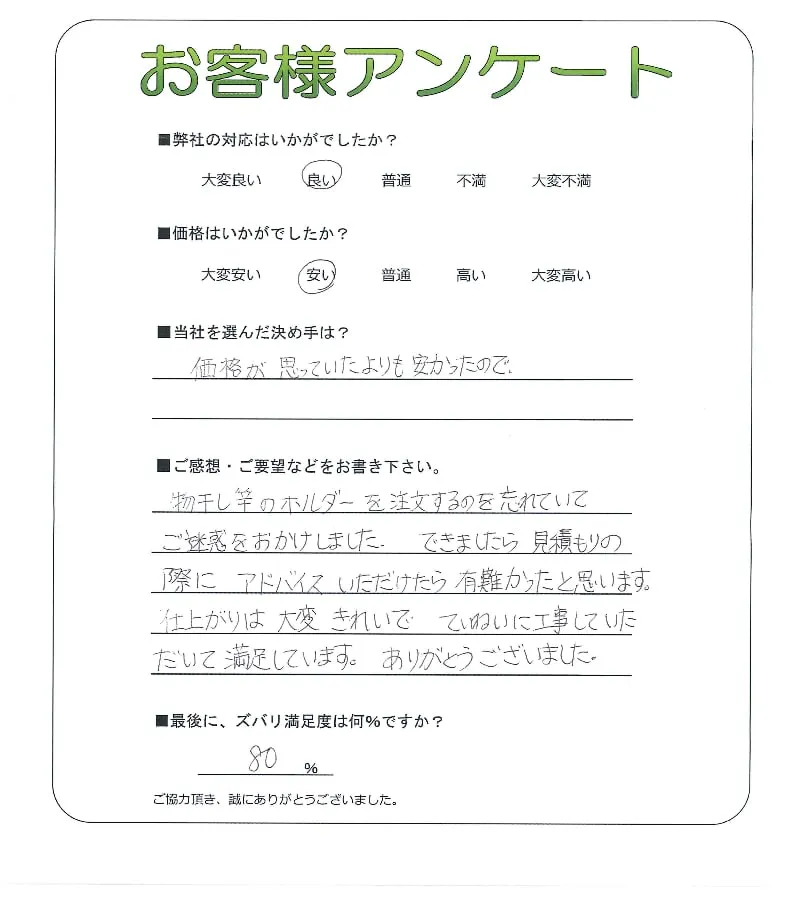 お客様アンケート
■弊社の対応はいかがでしたか？
大変良い 良い 普通 不満 大変不満
■価格はいかがでしたか？
大変安い 安い 普通 高い 大変高い
■当社を選んだ決め手は？
価格が思っていたよりも安かったので、
■ご感想・ご要望などをお書き下さい。
物干し竿のホルダーを注文するのを忘れていて
ご迷惑をおかけしました。できましたら見積もりの
際に アドバイスいただけたら有難かったと思います。
仕上がりは 大変 きれいで ていねいに工事していた
だいて満足しています。ありがとうございました。
■最後に、ズバリ満足度は何%ですか？
80 %
ご協力頂き、誠にありがとうございました。